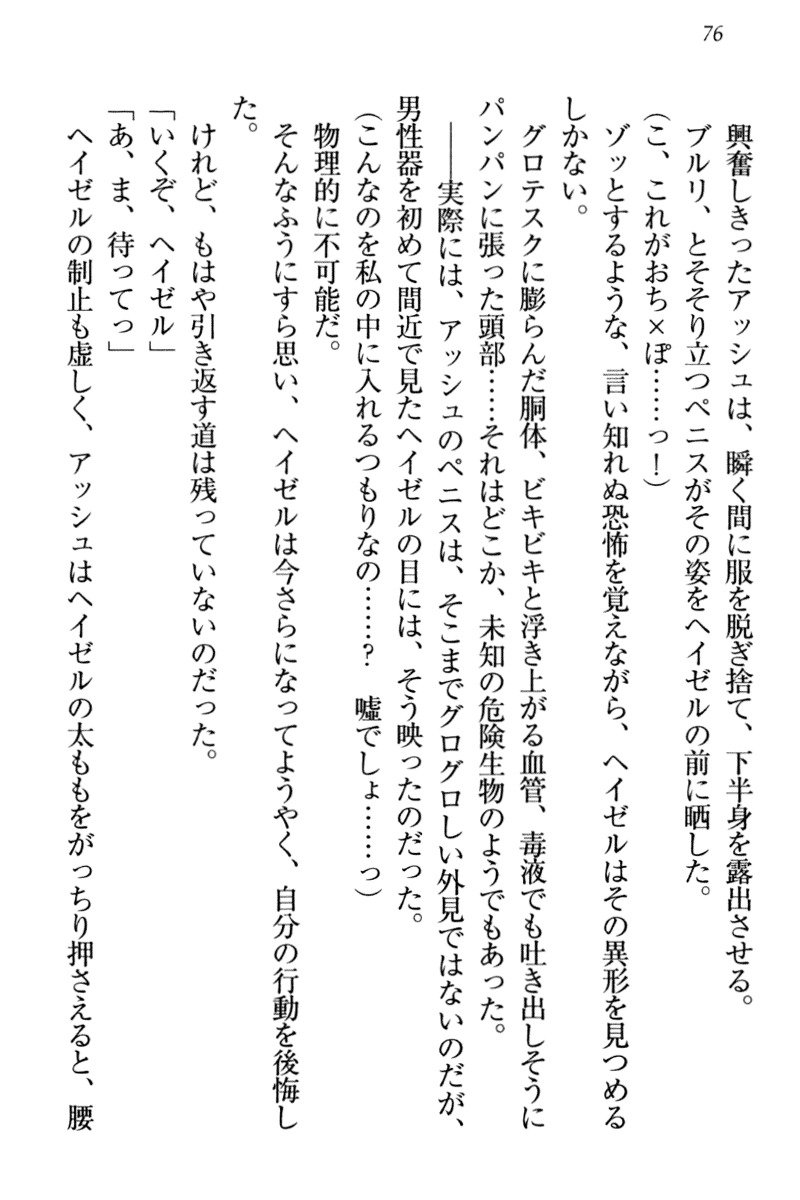 76
興奮しきったアッシュは、瞬く間に服を脱ぎ捨て、下半身を露出させる。
ブルリ、とそそり立つペニスがその姿をヘイゼルの前に晒した。
(こ、これがおち×ぽ……っ！)
ゾッとするような、言い知れぬ恐怖を覚えながら、ヘイゼルはその異形を見つめる
しかない。
グロテスクに膨らんだ胴体、ビキビキと浮き上がる血管、毒液でも吐き出しそうに
パンパンに張った頭部……それはどこか、未知の危険生物のようでもあった。
――実際には、アッシュのペニスは、そこまでグログロしい外見ではないのだが、
男性器を初めて間近で見たヘイゼルの目には、そう映ったのだった。
(こんなのを私の中に入れるつもりなの……？　嘘でしょ……っ)
物理的に不可能だ。
そんなふうにすら思い、ヘイゼルは今さらになってようやく、自分の行動を後悔し
た。
けれど、もはや引き返す道は残っていないのだった。
「いくぞ、ヘイゼル」
「あ、ま、待ってっ」
ヘイゼルの制止も虚しく、アッシュはヘイゼルの太ももをがっちり押さえると、腰